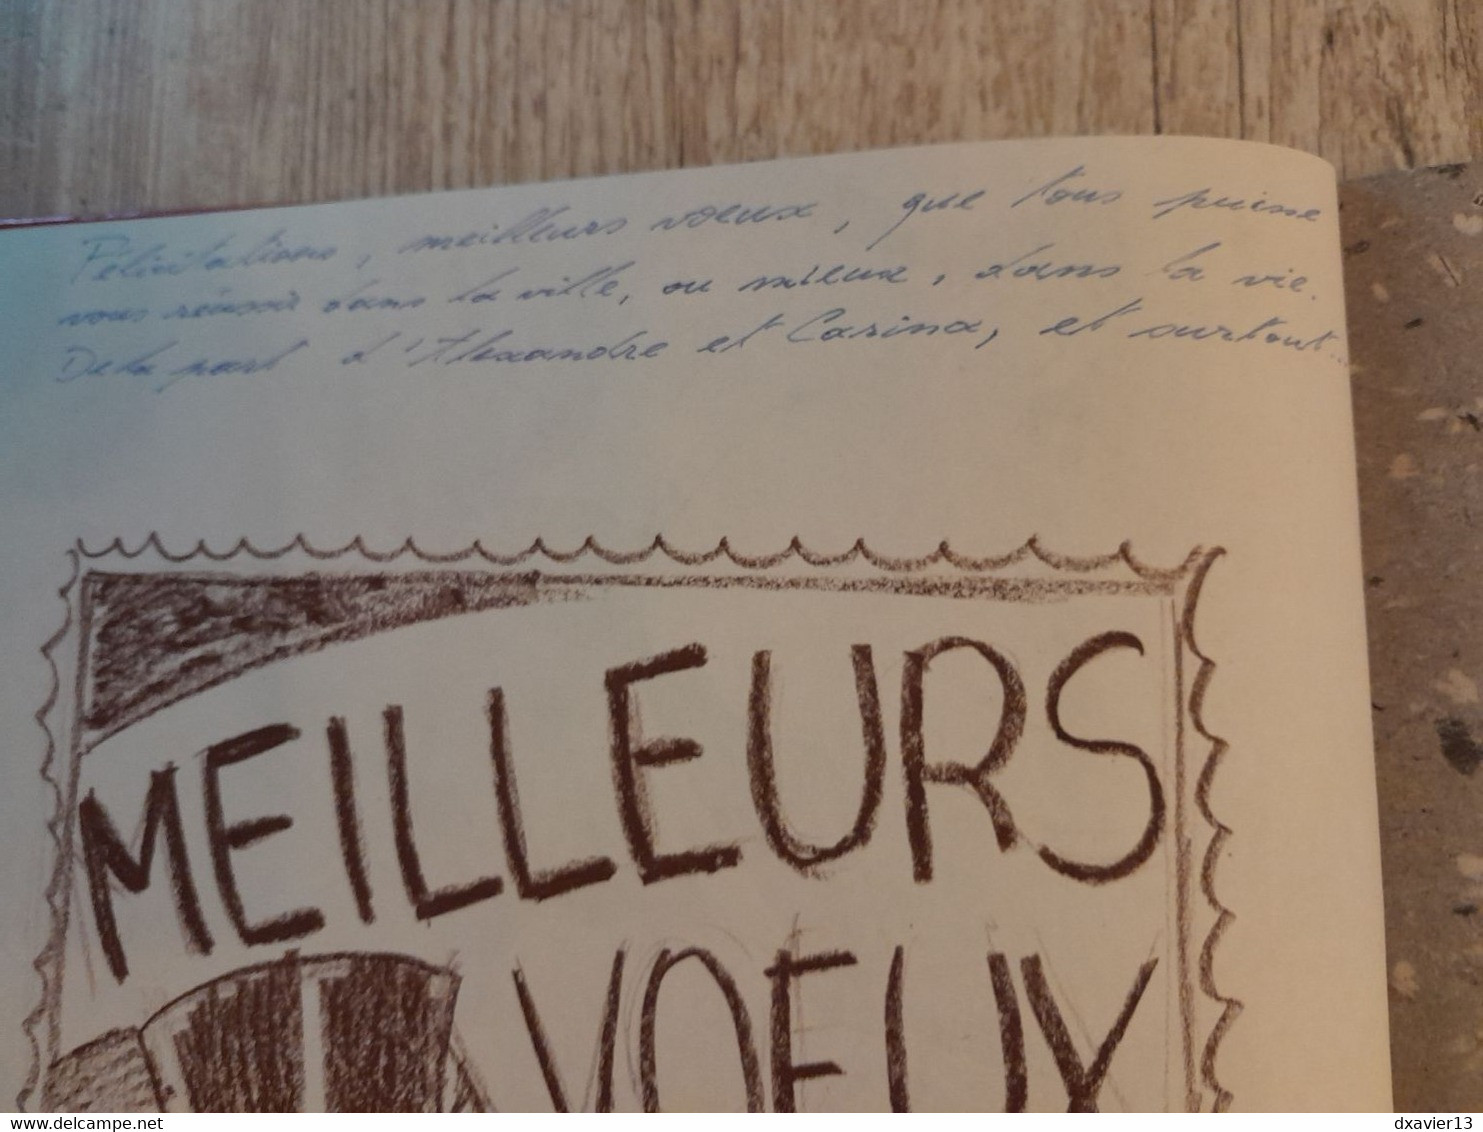 Félicitations, meilleurs voeux, que tous puisse
vous réussir dans la ville, ou mieux, dans la vie.
De la part d'Alexandre et Carina, et surtout...
MEILLEURS
VOEUX
dxavier13